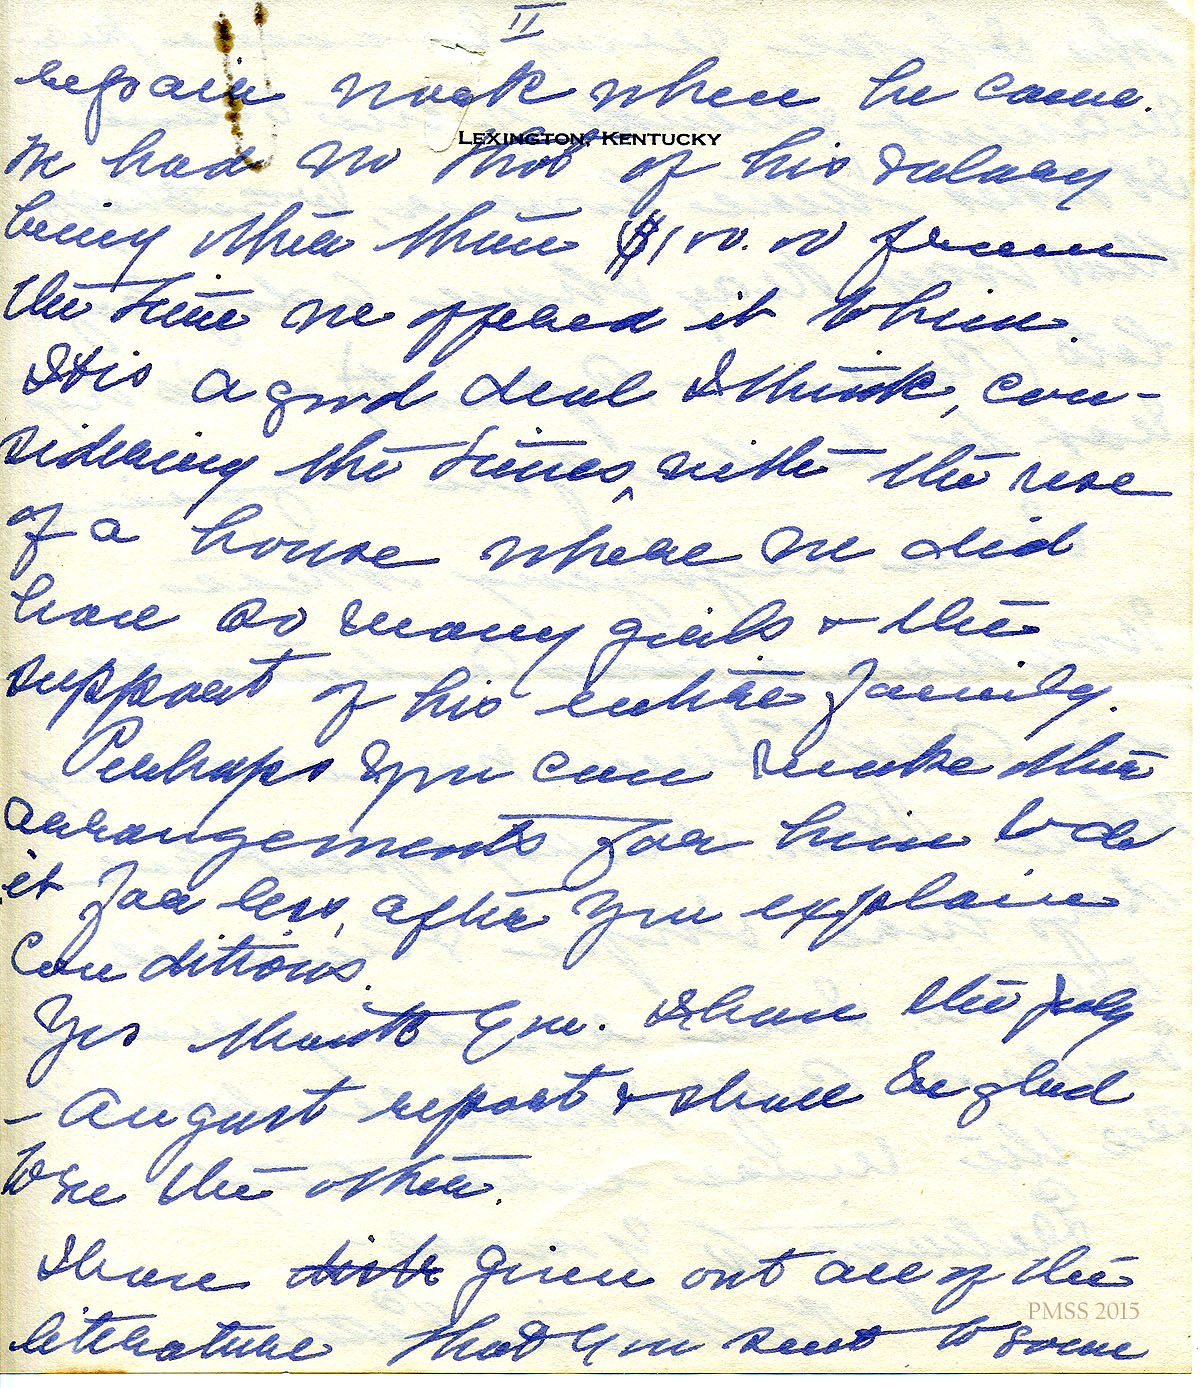 II
repair work when he came.
LEXINGTON, KENTUCKY
We had no thot of his salary
being other than $100.00 from
the time we offered it to him.
It is a good deal I think, con-
sidering the times, with the use
of a house where we did
have so many girls & the
support of his entire family.
Perhaps you can make the
arrangements for him to do
it for less, after you explain
conditions.
Yes thank you. I have the July
- August report & shall be glad
to see the other.
I have given out all of the
literature that you sent to some
PMSS 2015